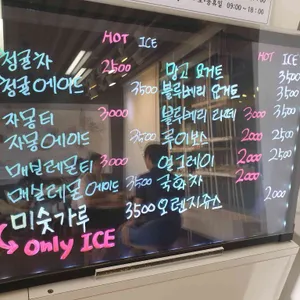 09:00~18:00
HOT ICE
정귤차 2500
정귤에이드 3500
자몽티 3000
자몽에이드 3500
매실레몬티 3000
매실레몬에이드 3500
미숫가루 3500
only ICE
HOT ICE
망고 요거트 3500
블루베리 요거트 3500
블루베리 라떼 3000 3500
루이보스 2000 2500
얼그레이 2000 2500
국화차 2000
오렌지쥬스 2000